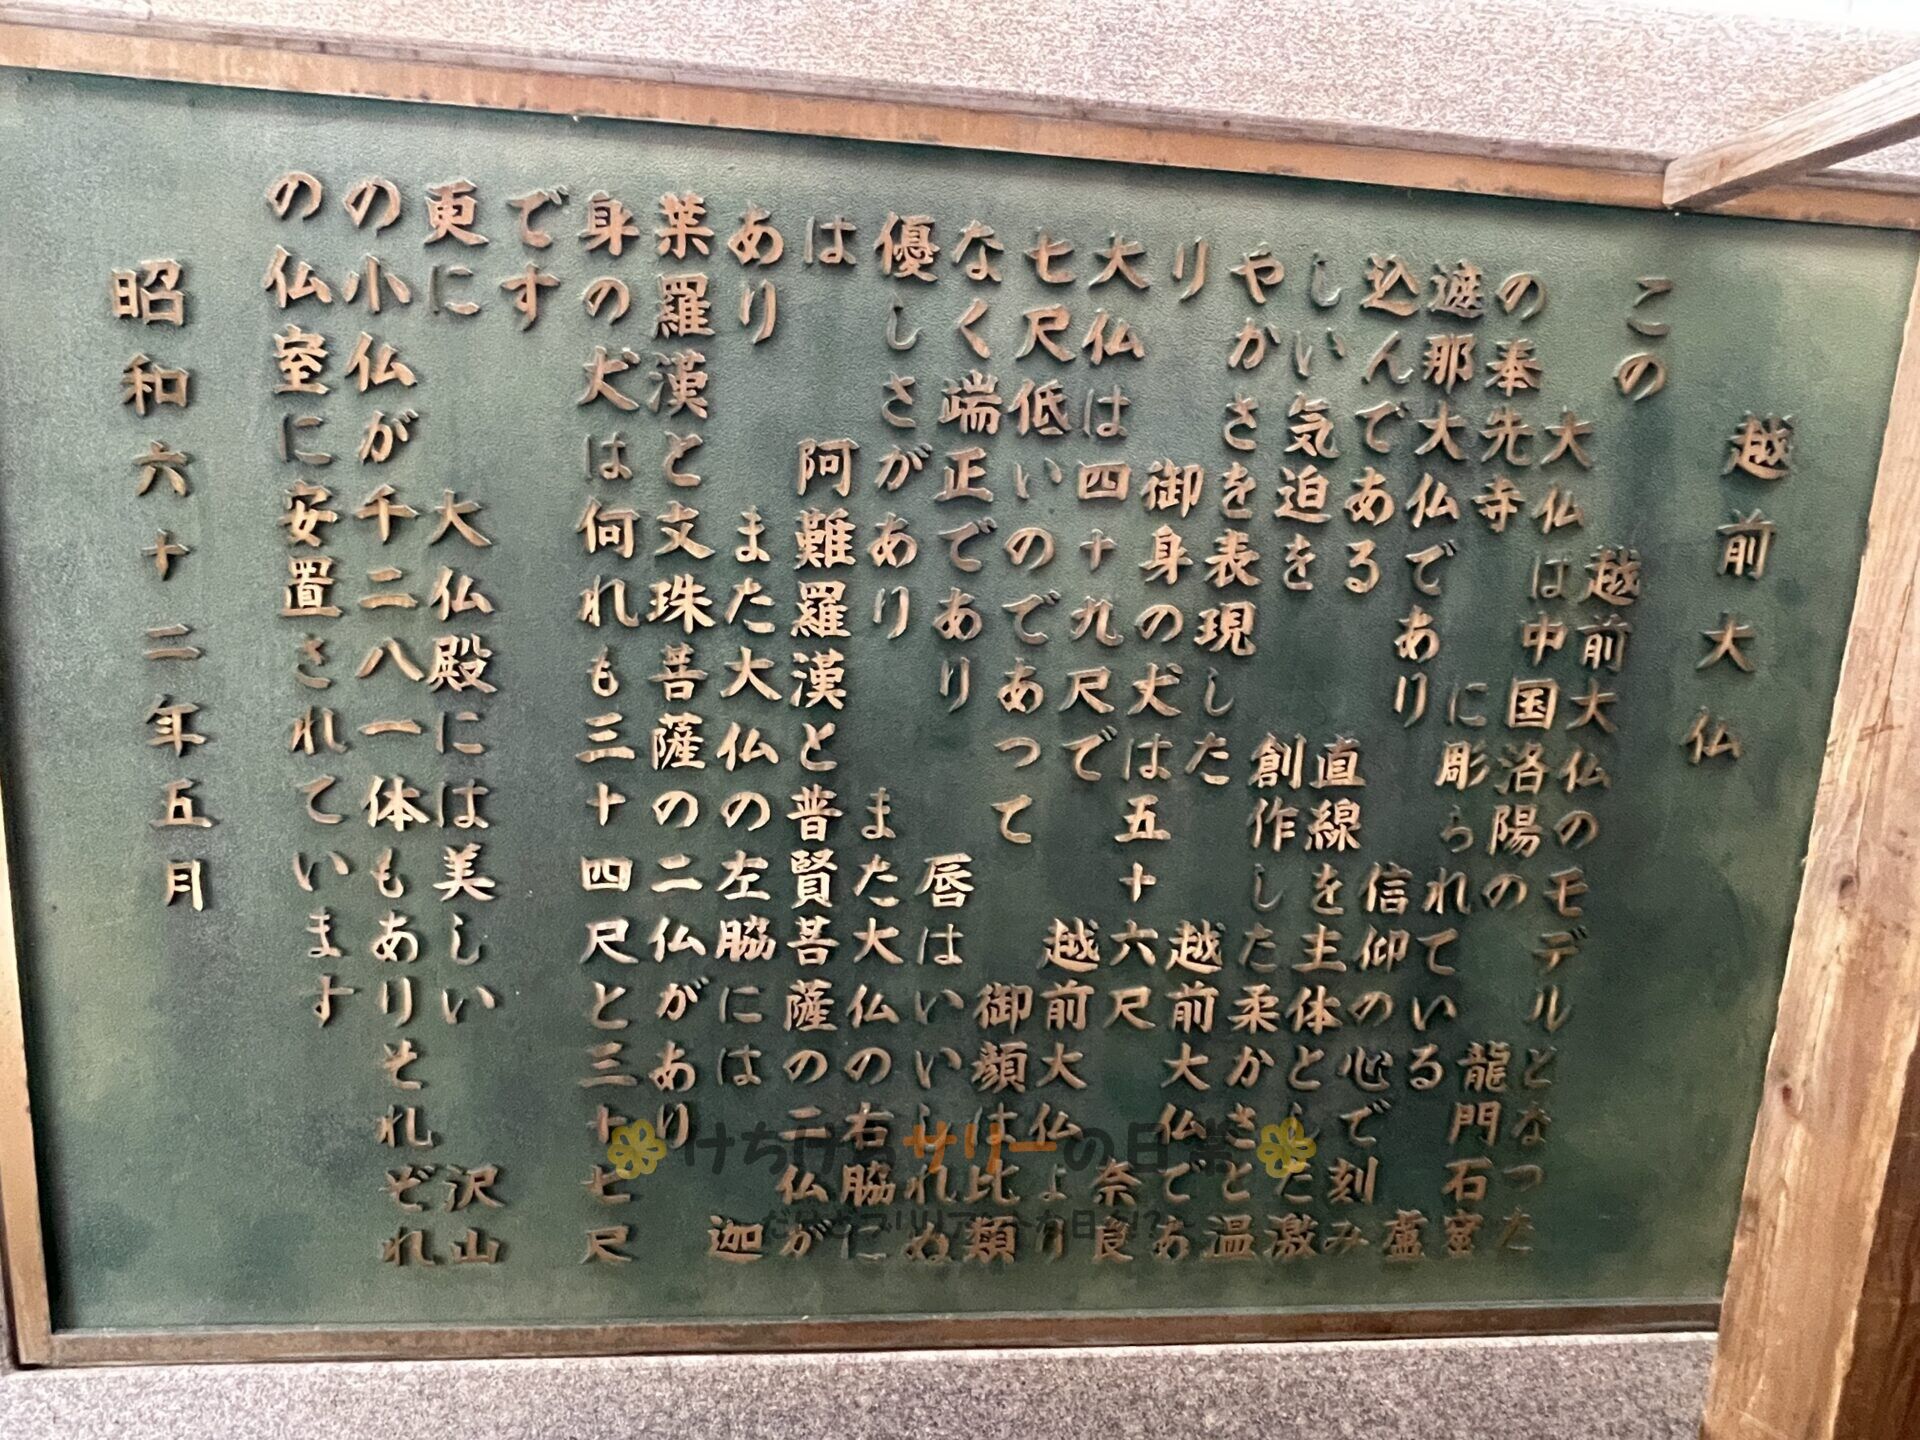 越前大仏
この　越前大仏のモデルとなった
大仏は中国洛陽の　龍門石窟
の奉先寺　に彫られている　盧
遮那大仏であり　信仰の心で刻み
込んである　直線を主体とした激
しい気迫を　創作した柔かさと温
やかさを表現した　越前大仏であ
り　御身の丈は五十六尺　奈良
大仏は四十九尺で　越前大仏より
七尺低いのであって　御顔は比類
なく端正であり　唇はいいしれぬ
優しさがあり　また大仏の右脇に
は　阿難羅漢と普賢菩薩の二仏が
あり　また大仏の左脇には　迦
葉羅漢と文珠菩薩の二仏があり
身の丈は何れも三十四尺と三十七尺
です
更に　大仏殿には美しい　沢山
の小仏が千二八一体もありそれぞれ
の仏室に安置されています
昭和六十二年五月
サリーの日常